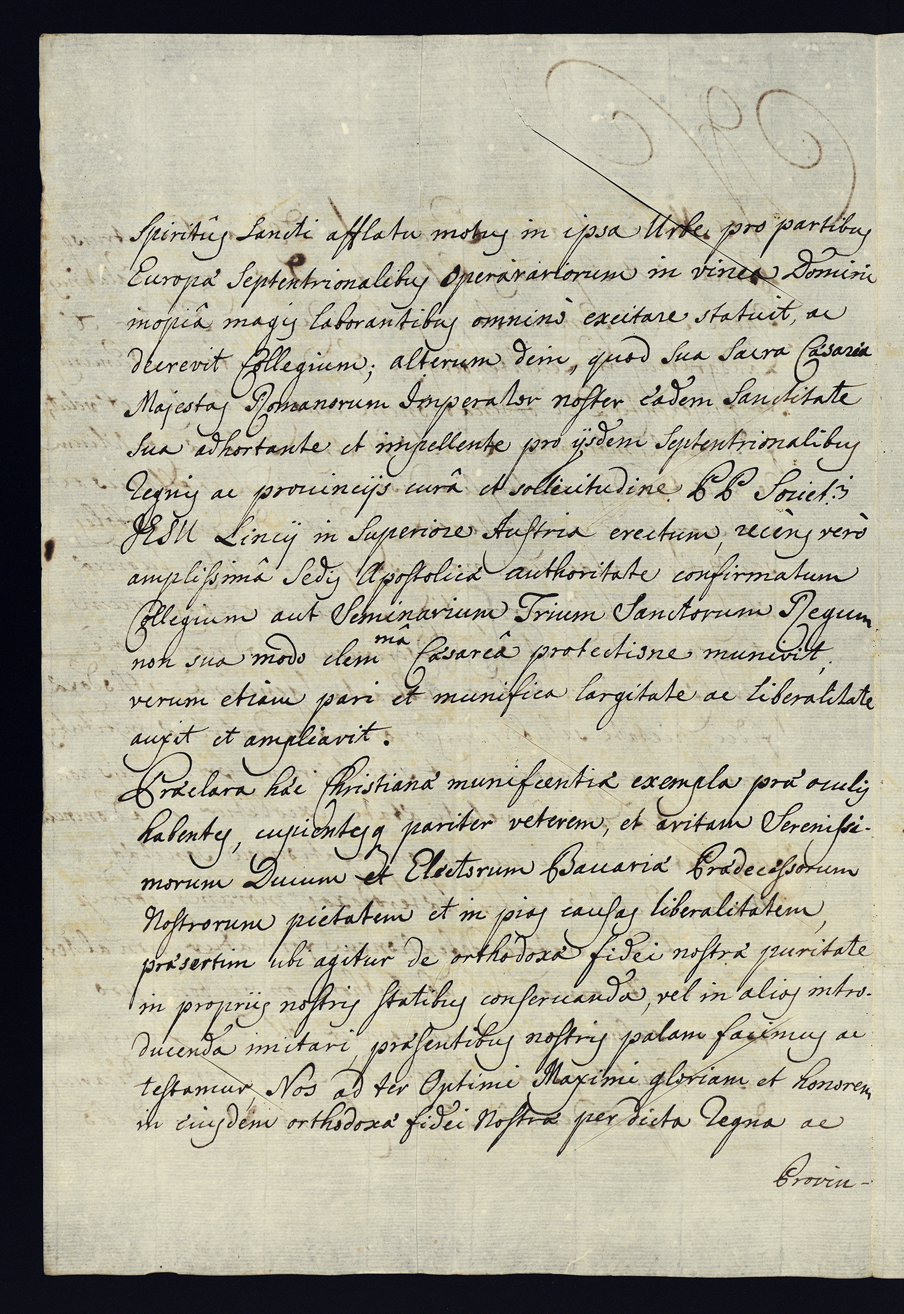 Spiritûs Sancti afflatu motus in ipsa Urbe pro partibus
Europæ Septentrionalibus Operarariorum in vinea Domini
inopiâ magis laborantibus omninò excitare statuit, ac
decrevit Collegium; alterum dein, quod Sua Sacra Cæsarea
Majestas Romanorum Imperator noster eâdem Sanctitate
Sua adhortante et impellente pro ijsdem Septentrionalibus
Regnis ac provincijs curâ et sollicitudine PP Societ:
JESU Lincij in Superiore Austria erectum, recèns verò
amplissimâ Sedis Apostolicæ authoritate confirmatum
Collegium aut Seminarium Trium Sanctorum Regum
non sua modo clem^mâ Cæsareâ protectione munivit,
verum etiam pari et munifica largitate ac liberalitate
auxit et ampliavit.
Præclara hæc Christianæ munificentiæ exempla præ oculis
habentes, cupientesq pariter veterem, et avitam Serenissi-
morum Ducum et Electorum Bavariæ Prædecessorum
Nostrorum pietatem et in pias causas liberalitatem,
præsertim ubi agitur de orthodoxæ fidei nostræ puritate
in propriis nostris statibus conservanda, vel in alios intro-
ducenda imitari, præsentibus nostris palam facimus ac
testamur Nos ad ter Optimi Maximi gloriam et honorem
in eiusdem orthodoxæ fidei Nostræ per dicta Regna ac
Provin-